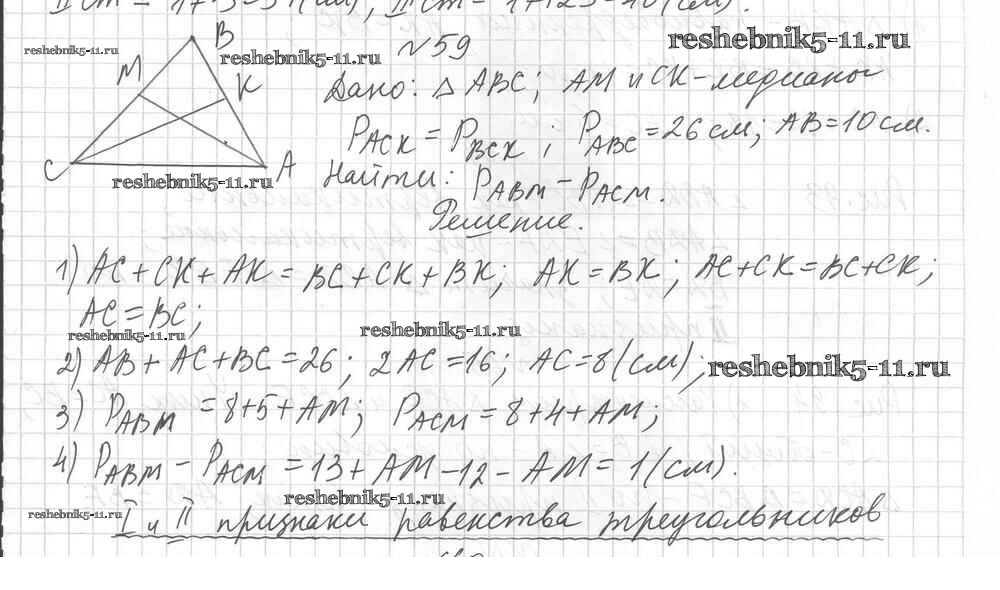 reshebnik5-11.ru
B
reshebnik5-11.ru
№59
reshebnik5-11.ru
M
K
Дано: △ ABC; AM и CK - медианы
P_ACK = P_BCK ; P_ABC = 26 см; AB = 10 см.
C
A
reshebnik5-11.ru
Найти: P_ABM - P_ACM.
Решение.
1) AC + CK + AK = BC + CK + BK; AK = BK; AC + CK = BC + CK;
AC = BC;
reshebnik5-11.ru
reshebnik5-11.ru
2) AB + AC + BC = 26; 2AC = 16; AC = 8 (см);
reshebnik5-11.ru
3) P_ABM = 8 + 5 + AM; P_ACM = 8 + 4 + AM;
4) P_ABM - P_ACM = 13 + AM - 12 - AM = 1 (см).
reshebnik5-11.ru
reshebnik5-11.ru
I и II признаки равенства треугольников